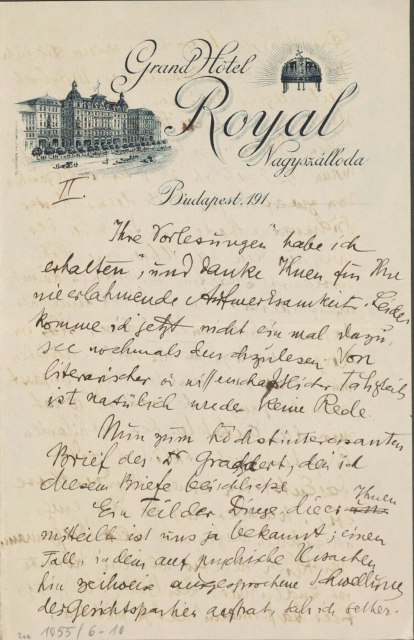 Grand Hôtel
Royal
Nagyszálloda
II.
Budapest, 191
Ihre Vorlesungen" habe ich
erhalten", und danke Ihnen für Ihre
nie erlahmende Aufmerksamkeit. Leider
komme ich jetzt nicht ein mal dazu
sie nochmals durchzulesen. Von
literarischer o. wissenschaftlicher Tätigkeit
ist natürlich weder keine Rede.
Nun zum höchstinteressanten
Brief des Dr Groddeck, den ich
diesem Briefe beischließe
Ein Teil der Dinge, die er Ihnen
mitteilt ist uns ja bekannt; einen
Fall, in dem auf psychische Ursachen
hin zeitweis ausgesprochene Schwellung
der Gesichtspartien auftrat, sah ich selber.
zu 1055/6-10